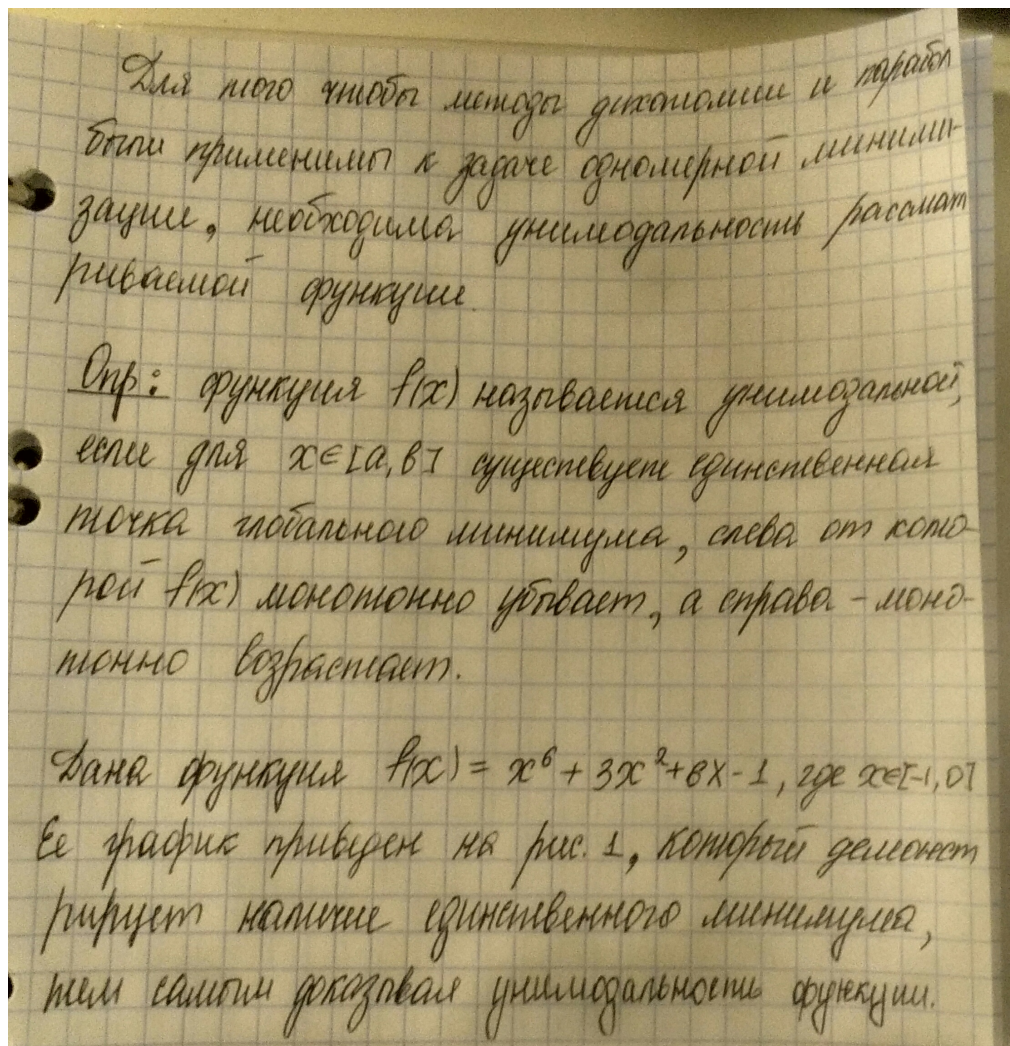 Для того чтобы методы дихотомии и парабол
были применимы к задаче одномерной миними-
зации, необходима унимодальность рассмат
риваемой функции.
Опр: функция f(x) называется унимодальной,
если для x∈[a,b] существует единственная
точка глобального минимума, слева от кото-
рой f(x) монотонно убывает, а справа - моно-
тонно возрастает.
Дана функция f(x) = x⁶ + 3x² + 6x - 1, где x∈[-1,0]
Ее график приведен на рис. 1, который демонст
рирует наличие единственного минимума,
тем самым доказывая унимодальность функции.